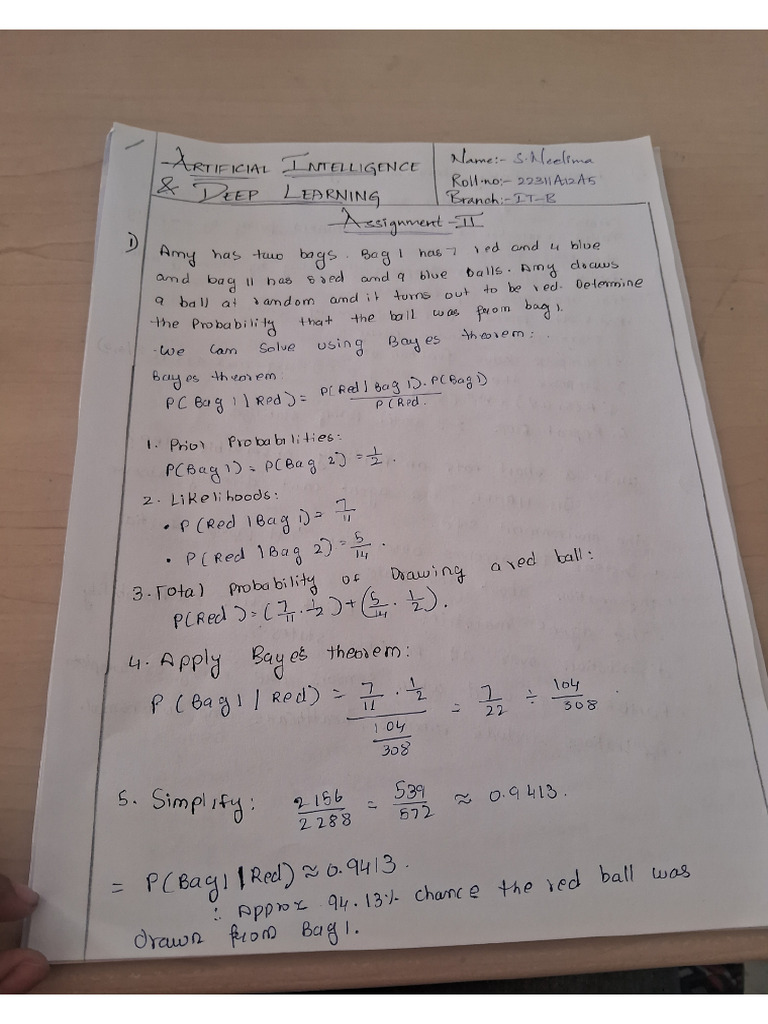 ARTIFICIAL INTELLIGENCE
& DEEP LEARNING
Name:- S.Neelima
Roll-no:- 22311A12A5
Branch:- IT-B
Assignment-II
1) Amy has two bags. Bag 1 has 7 red and 4 blue
and bag 11 has 5 red and 9 blue balls. Amy draws
a ball at random and it turns out to be red. Determine
the Probability that the ball was from bag 1.
-We can solve using Bayes theorem:
Bayes theorem:
P(Bag 1 | Red) = P(Red | Bag 1). P(Bag 1) / P(Red.
1. Prior Probabilities:
P(Bag 1) = P(Bag 2) = 1/2.
2. Likelihoods:
• P(Red | Bag 1) = 7/11
• P(Red | Bag 2) = 5/14.
3. Total probability of Drawing a red ball:
P(Red) = (7/11 . 1/2) + (5/14 . 1/2).
4. Apply Baye's theorem:
P(Bag 1 | Red) = 7/11 . 1/2 / 104/308 = 7/22 ÷ 104/308.
5. Simplify: 2156/2288 = 539/572 ≈ 0.9413.
= P(Bag 1 | Red) ≈ 0.9413.
: Approx 94.13% chance the red ball was
drawn from Bag 1.